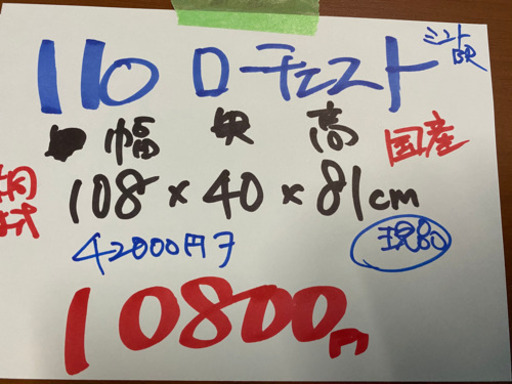 110 ローチェスト ミント BR
幅 奥 高 国産
108×40×81cm
42000円 現品
10800円